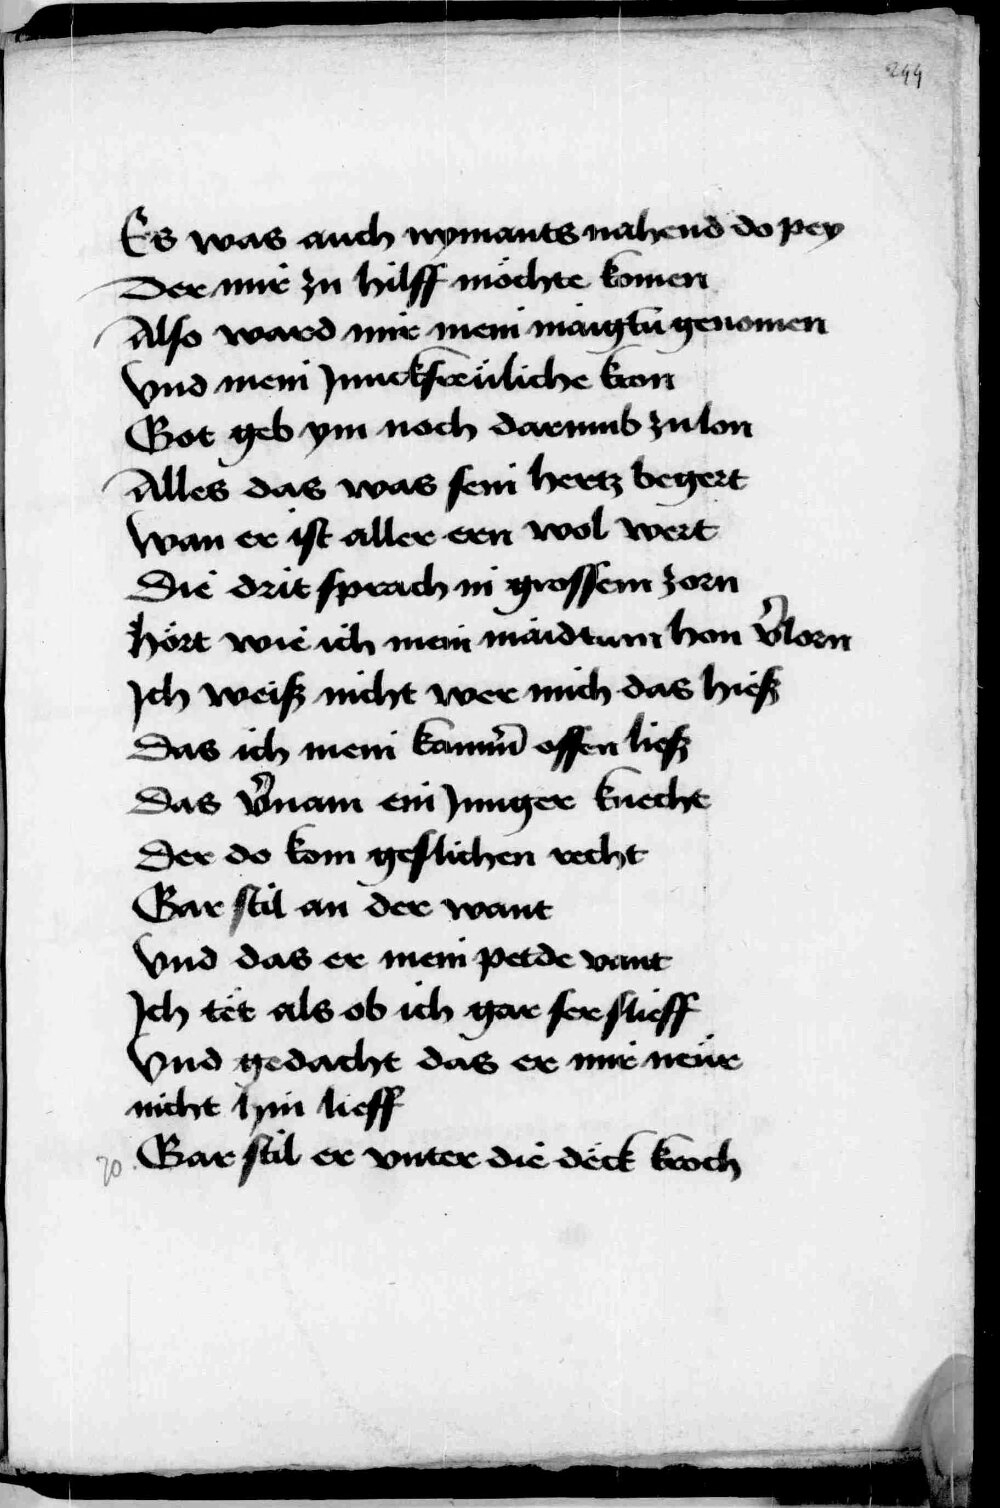 299
Es was auch nymants nahend do pey
Der mir zu hilff möchte komen
Also ward mir mein maigtū genomen
Vnd mein Junckfreüliche kron
Got geb ym noch darumb zu lon
Alles das was sein hertz begert
Wan er ist aller ern wol wert
Die drit sprach in grossem zorn
Hört wie ich mein maidtum hon v̄lorn
Ich weiß nicht wer mich das hieß
Das ich mein kamm̄ offen ließ
Das v̄nam ein Junger knecht
Der do kom geslichen recht
Gar stil an der want
Vnd das er mein petde vant
Ich tët als ob ich gar ser slieff
Vnd gedacht das er mir neür
nicht hin lieff
Gar stil er vnter die deck kroch